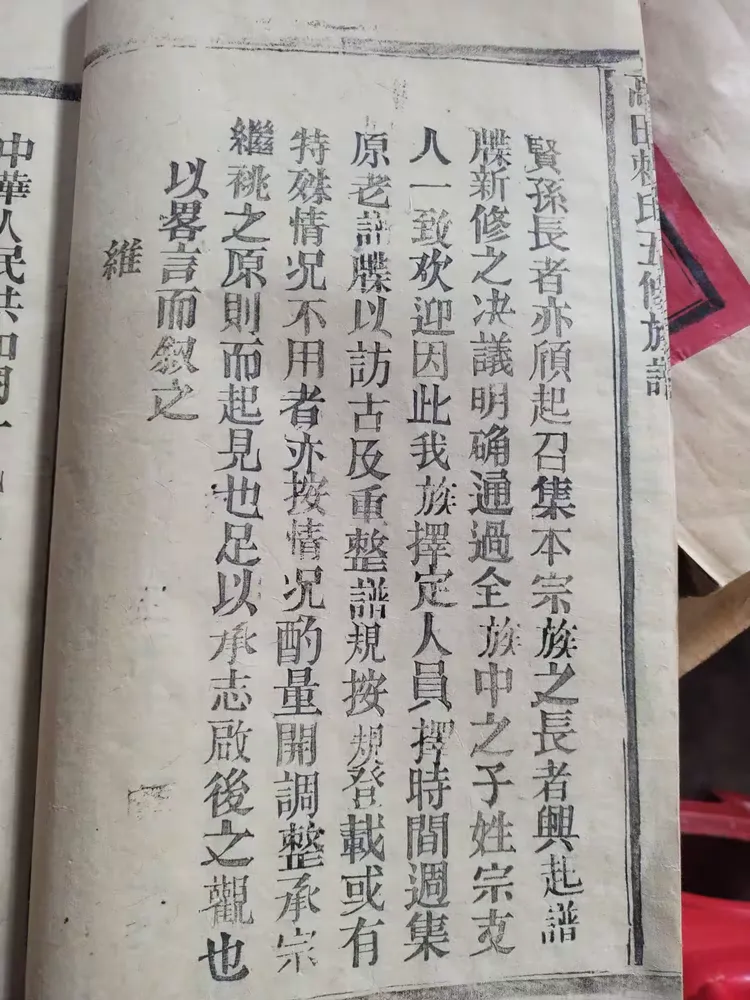 高田賴氏五修族譜
賢孫長者亦頎起召集本宗族之長者興起譜
牒新修之决議明确通過全族中之子姓宗支
人一致欢迎因此我族擇定人員擇時間週集
原老譜牒以訪古及重整譜規按規登載或有
特殊情况不用者亦按情况酌量開調整承宗
繼祧之原則而起見也足以承志啟後之觀也
以畧言而叙之
維
中華人民共和國一九